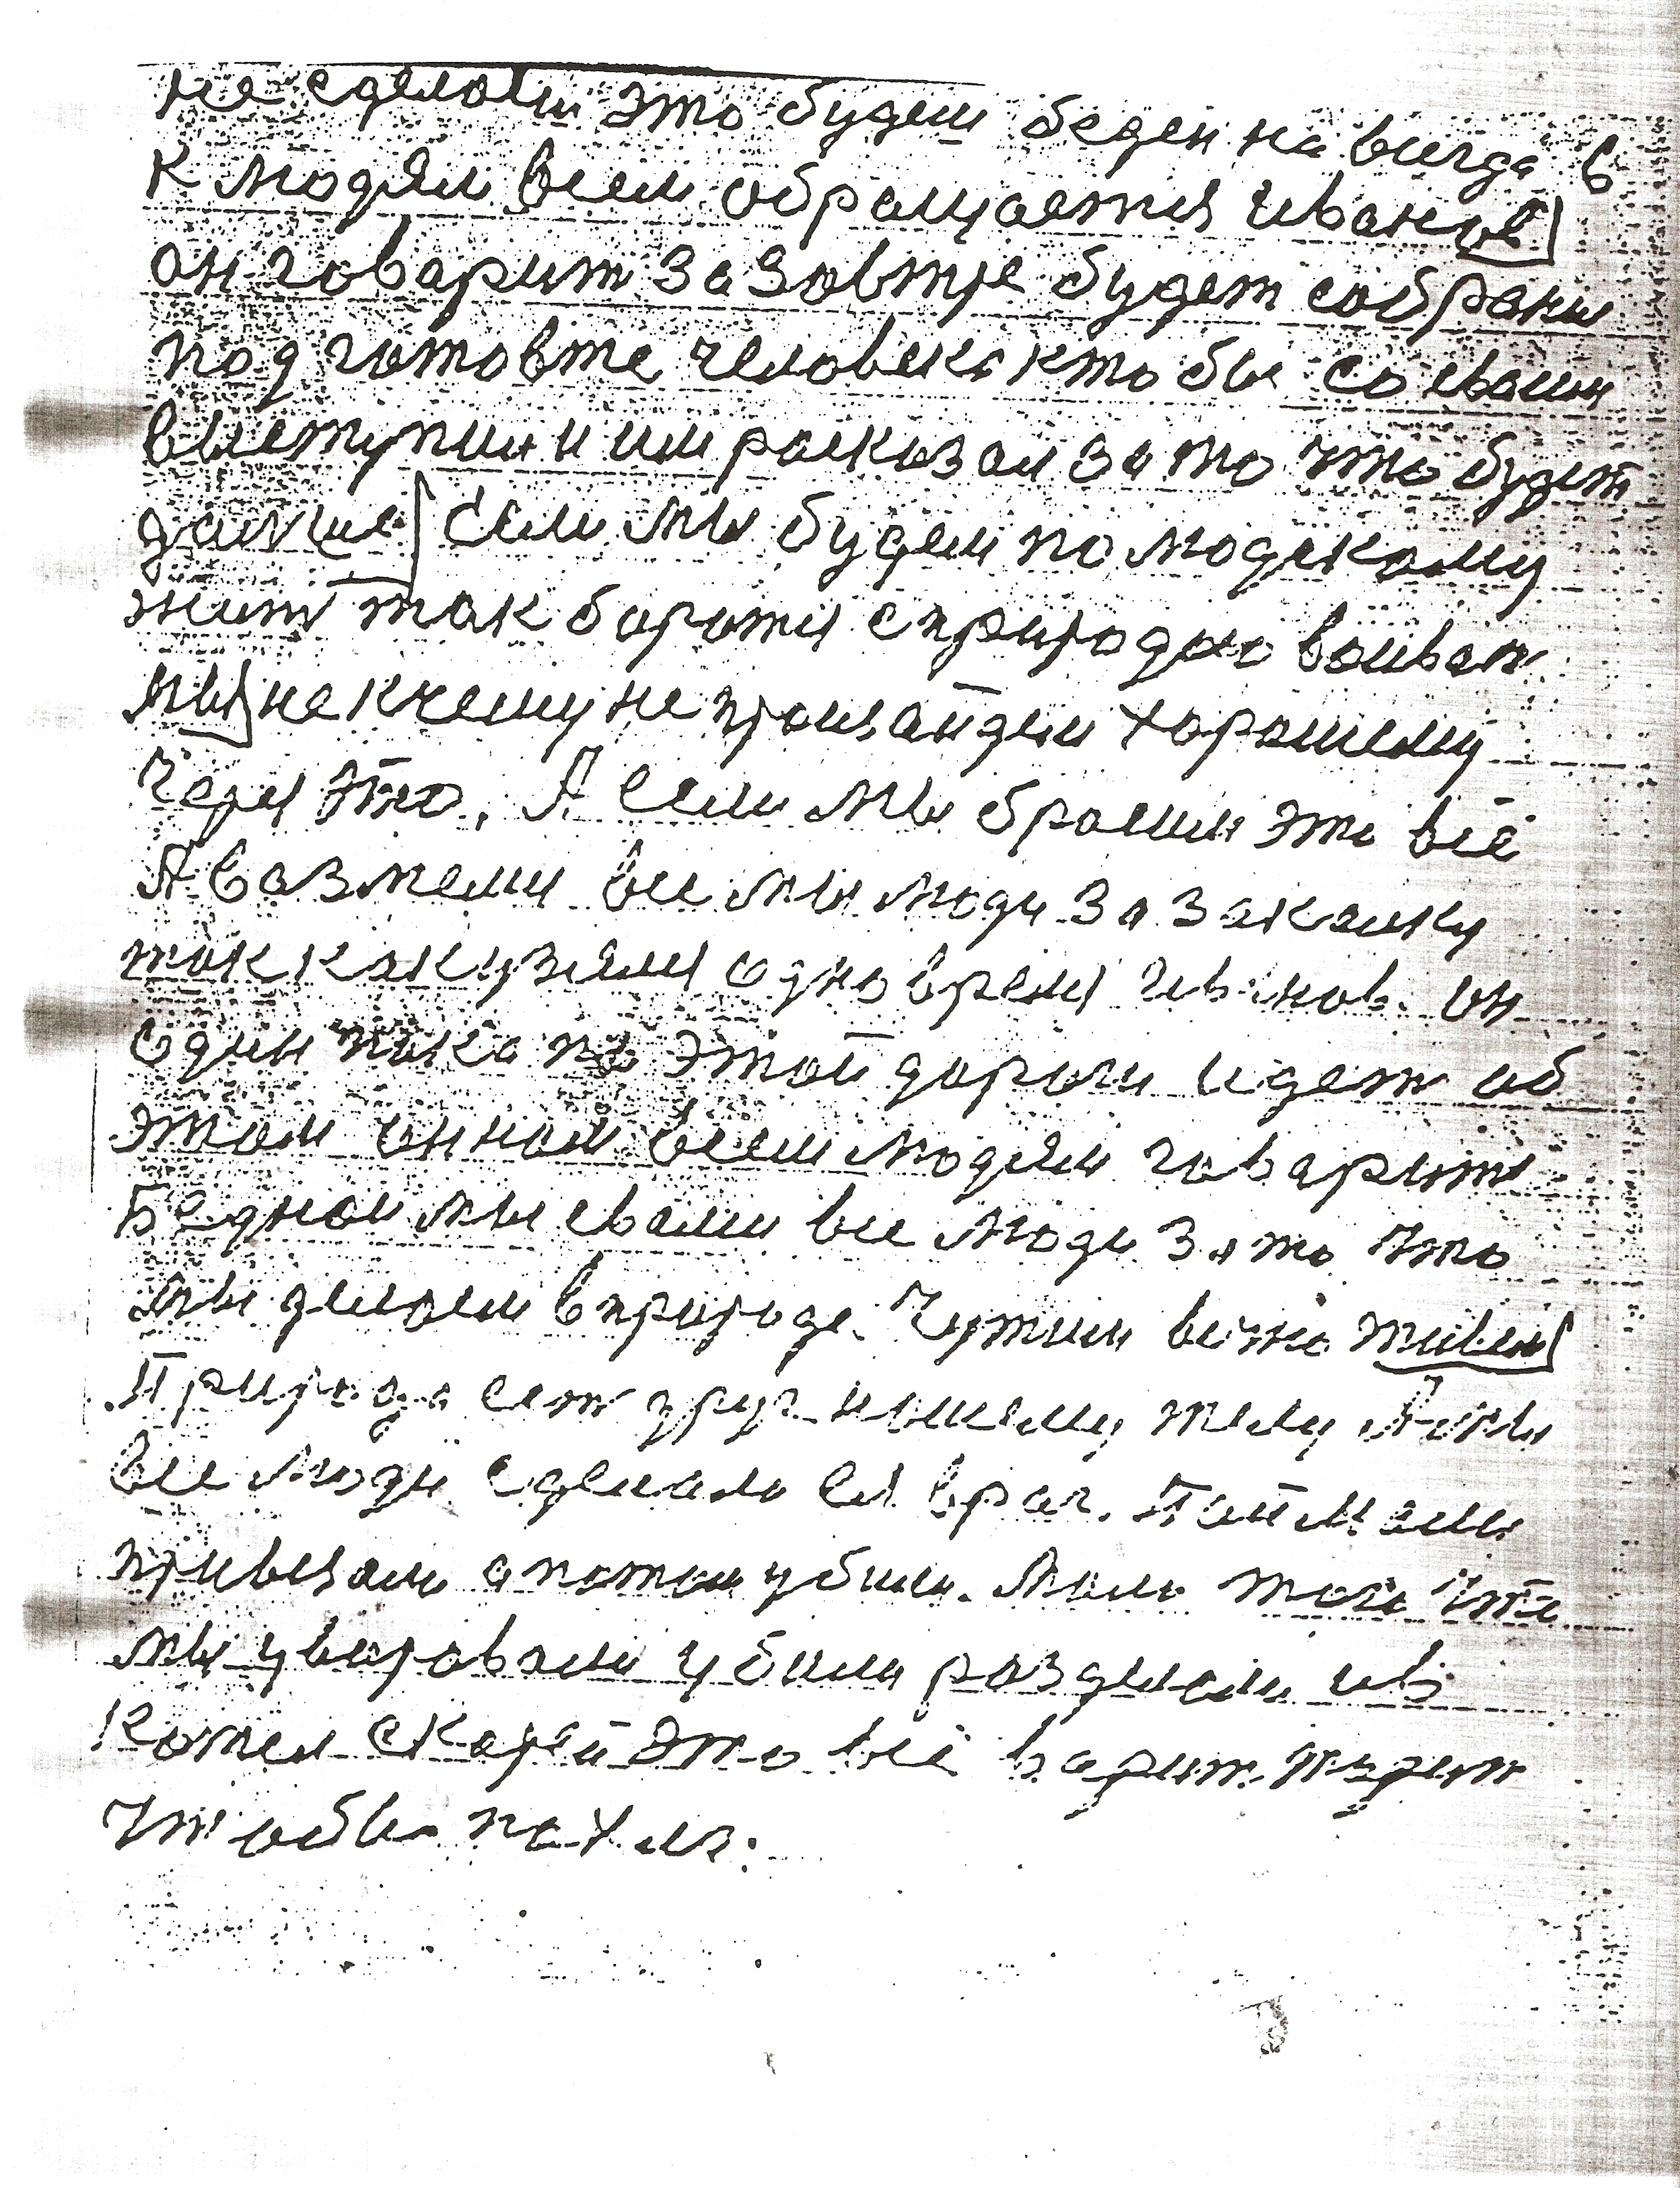 не сделаеш это будеш беден на всегда 6
к людям всем обращается иванов
он говарит за завтре будет собрани
под готовте человека кто бы со своим
выступил и им расказал за то что будет
дальше если мы будем по людскому
жит так боротся с природою воиват
мы не к чему не произайдем харошему
через это. А если мы бросим это все
А возмемся все мы люди за закалку
так как узялся одно время иванов. он
один пока по этой дороги идет об
этом он нам всем людям говарит
Бедной мы свами все люди за то что
мы делаем в природе. Чужим вечно живем
Природа ест друг нашему телу А мы
все люди сделались ей враг. Поймали
привезали а потом убили. Мало того что
мы уваровали убили раздилали и в
котел скарей это все варит жарит
чтобы пахло.